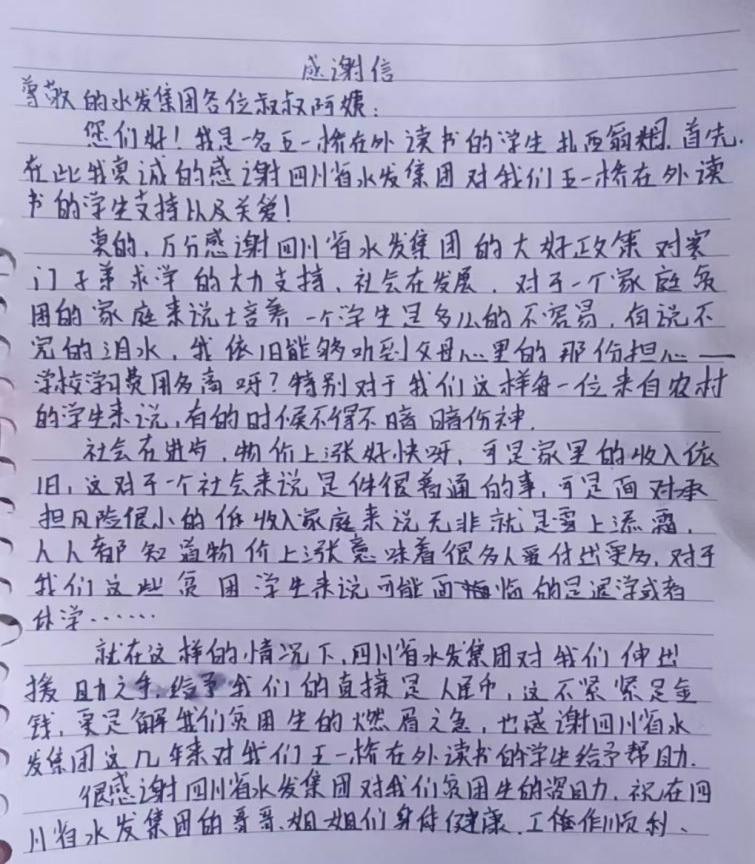 感谢信
尊敬的水发集团各位叔叔阿姨:
您们好!我是一名五一桥在外读书的学生扎西翁姆,首先,
在此我真诚的感谢四川省水发集团对我们五一桥在外读
书的学生支持以及关爱!
真的,万分感谢四川省水发集团的大好政策对寒
门子弟求学的大力支持,社会在发展,对于一个家庭贫
困的家庭来说培养一个学生是多么的不容易,有说不
完的泪水,我依旧能够听到父母心里的那份担心——
学校学习费用多高呀?特别对于我们这样每一位来自农村
的学生来说,有的时候不得不暗暗伤神.
社会在进步,物价上涨好快呀,可是家里的收入依
旧,这对于一个社会来说是件很普通的事,可是面对承
担风险很小的低收入家庭来说无非就是雪上添霜,
人人都知道物价上涨意味着很多人要付出更多,对于
我们这些贫困学生来说可能面临的是退学或者
休学……
就在这样的情况下,四川省水发集团对我们伸出
援助之手,给予我们的直接是人民币,这不紧紧是金
钱,更是解我们贫困生的燃眉之急,也感谢四川省水
发集团这几年来对我们五一桥在外读书的学生给予帮助.
很感谢四川省水发集团对我们贫困生的资助力,祝在四
川省水发集团的哥哥、姐姐们身体健康,工作顺利、